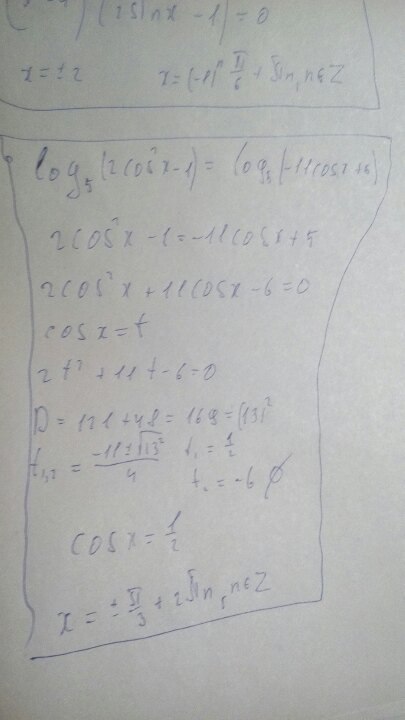 (2sinx - 1) = 0
x = ±2 x = (-1)ⁿ π/6 + πn, n∈Z
log₅(2cos²x-1) = log₅(-11cosx+5)
2cos²x - 1 = -11cosx + 5
2cos²x + 11cosx - 6 = 0
cosx = t
2t² + 11t - 6 = 0
D = 121 + 48 = 169 = (13)²
t₁,₂ = (-11 ± √13²)/4 t₁ = 1/2
t₂ = -6 ∅
cosx = 1/2
x = ± π/3 + 2πn, n∈Z